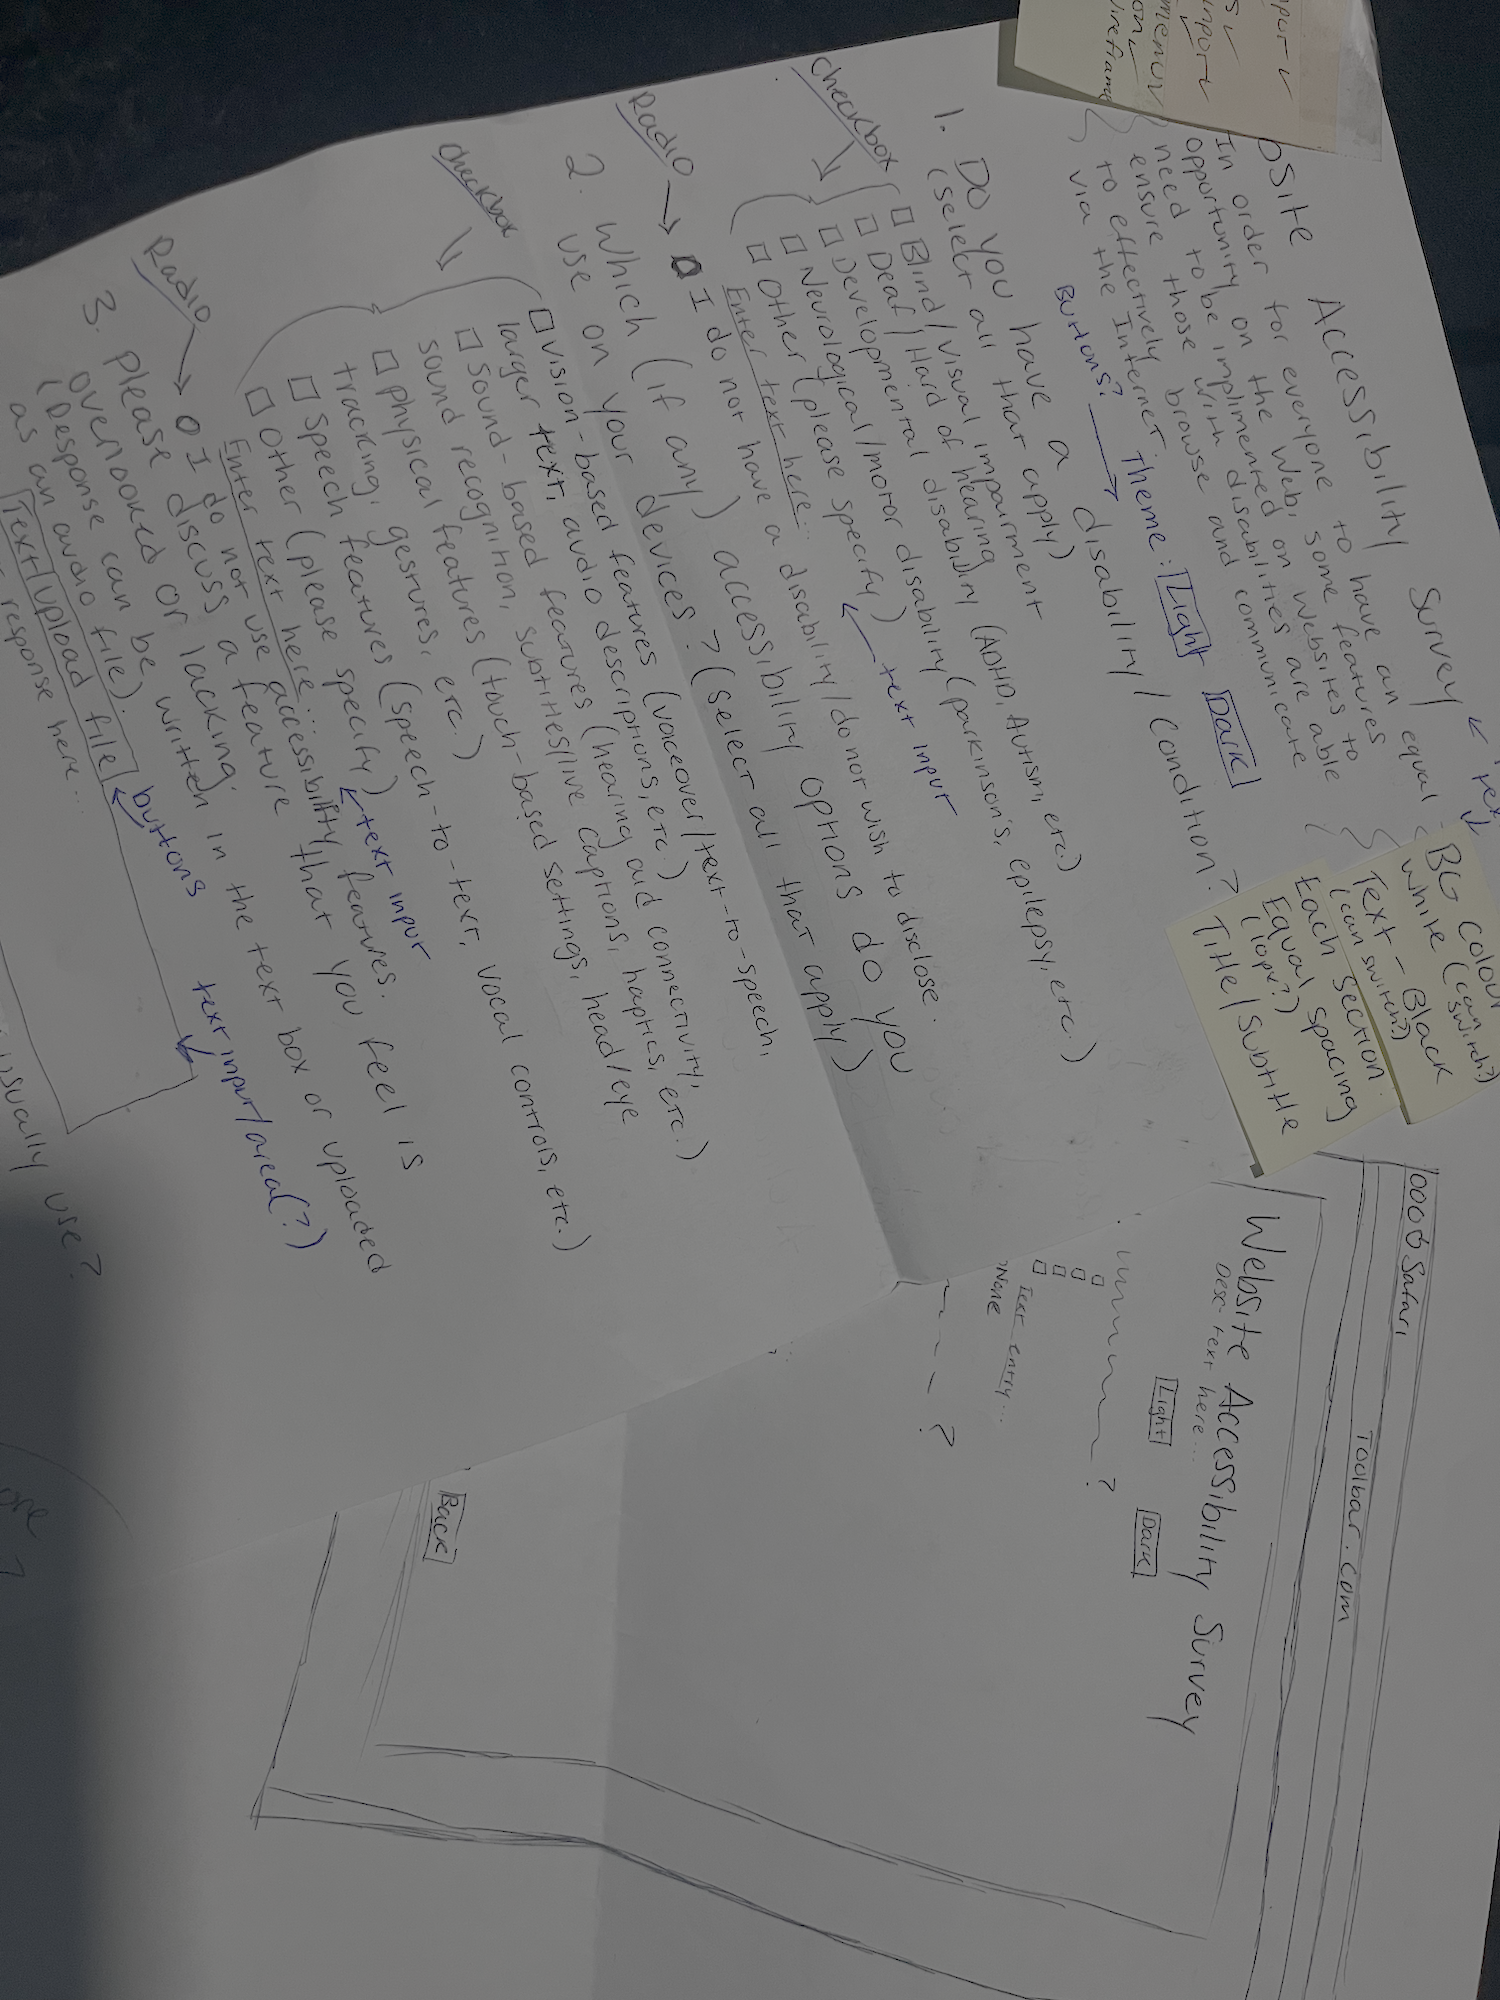 bsite Accessibility Survey
In order for everyone to have an equal
opportunity on the Web, some features
need to be implimented on websites to
ensure those with disabilities are able
to effectively browse and communicate
via the Internet.
Buttons?
Theme: Light Dark
1. Do you have a disability/condition?
(select all that apply)
checkbox
Blind/visual impairment
Deaf/Hard of hearing
Developmental disability (ADHD, Autism, etc.)
Neurological/motor disability (parkinson's, epilepsy, etc.)
Other (please specify)
text input
Enter text here...
Radio
I do not have a disability/do not wish to disclose.
2. Which (if any) accessibility options do you
use on your devices? (select all that apply)
checkbox
vision-based features (voiceover/text-to-speech,
larger text, audio descriptions, etc.)
sound-based features (hearing aid connectivity,
sound recognition, subtitles/live captions, haptics, etc.)
physical features (touch-based settings, head/eye
tracking, gestures, etc.)
speech features (speech-to-text, vocal controls, etc.)
Other (please specify)
text input
Enter text here...
Radio
I do not use accessibility features.
3. please discuss a feature that you feel is
overlooked or lacking, written in the text box or uploaded
as an audio file).
(Response can be
Text/upload file
buttons
text input/area(?)
response here...
usually use?
BG Colour
white (can
switch?)
Text - Black
(can switch?)
Each section
Equal spacing
(10px?)
Title/Subtitle
input
menu
on
wireframe
Safari
Toolbar.com
Website Accessibility Survey
Desc. text here...
Light Dark
?
Text entry...
None
?
Back